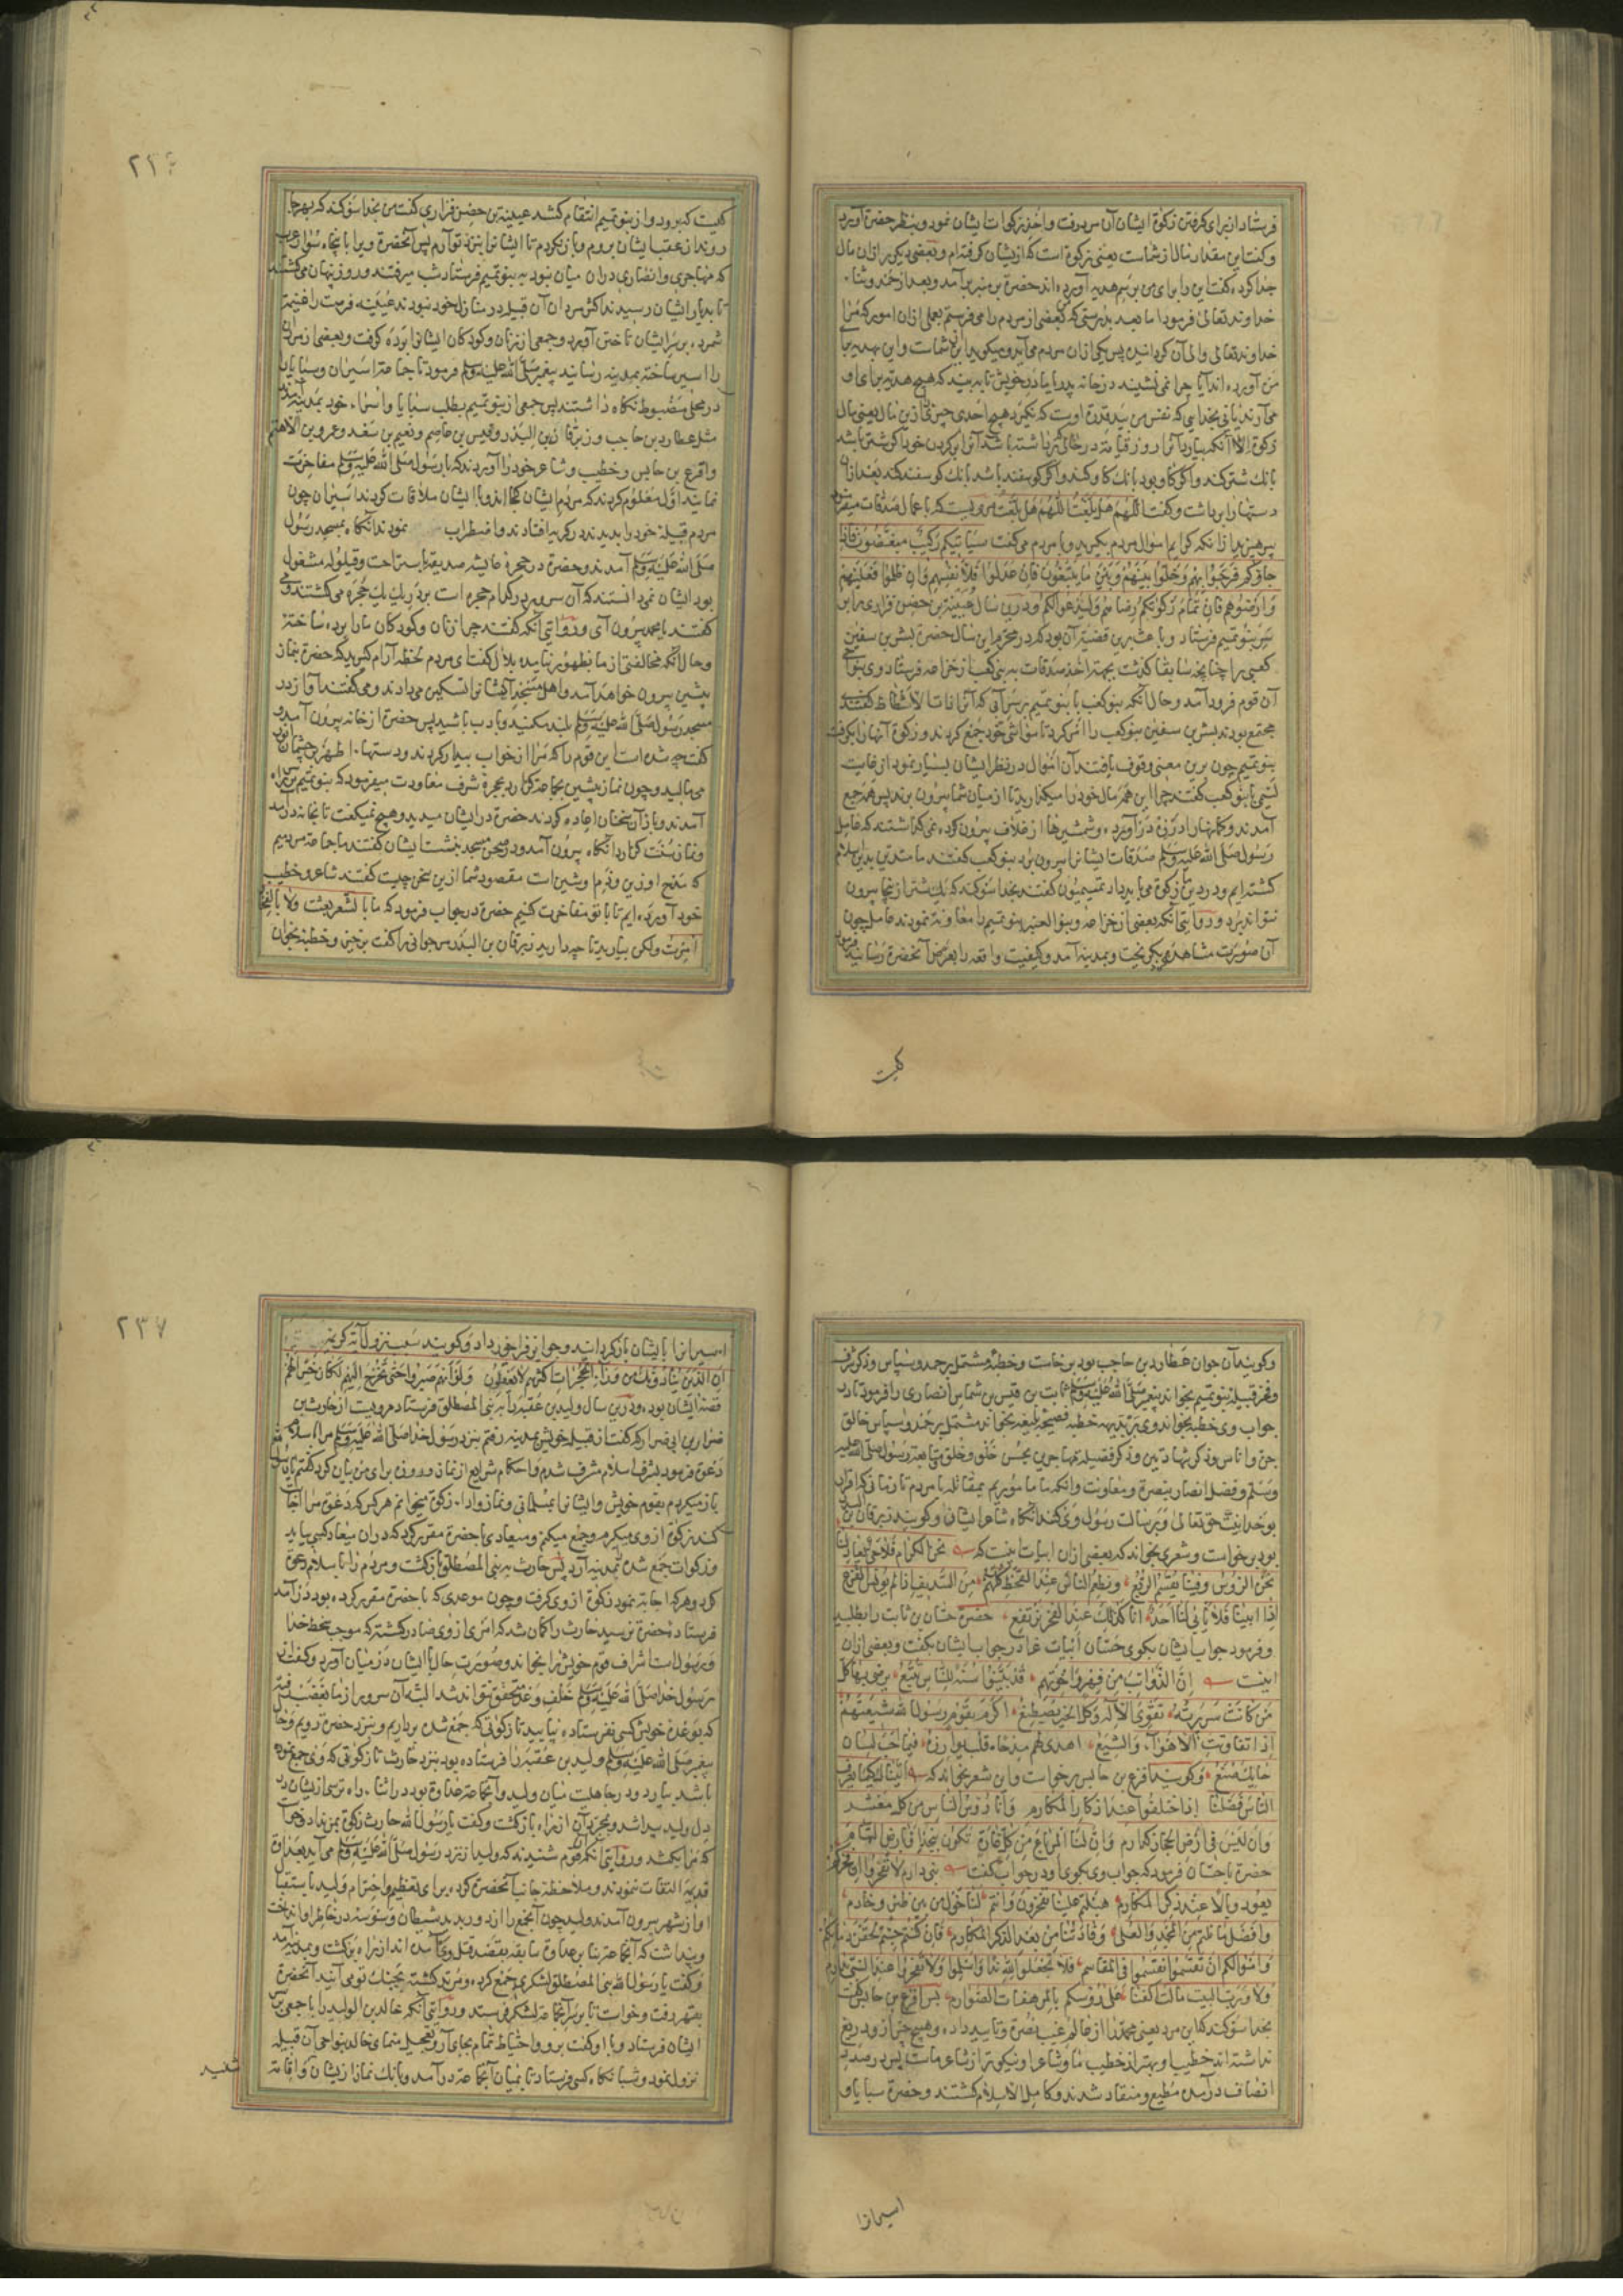 فرستاد از برای گرفتن زکوة ایشان آن سرور رفت و اخذ زکوات ایشان نمود و بنظر حضرة آورد
و گفت این مقدار مال از شماست یعنی زکوة است که ازیشان گرفته‌ام و بعضی دیگر را از ان مال
جدا کرده گفت این را برای من برسم هدیه آورده‌اند حضرة بر منبر برآمد و بعد از حمد و ثنای
خداوند تعالی فرمود اما بعد بدرستی که بعضی از مردم را می فرستم بعملی از ان امور که مرا
خداوند تعالی والی آن گردانیده پس یکی از ان مردم می آید و میگوید این از شماست و این بهدیه برای
من آورده‌اند آیا چرا نمی نشیند در خانه پدر یا مادر خویش تا به بیند که هیچ هدیه برای او
می آرند یا نی بخدایی که نفس من بید قدرة اوست که نگیرد هیچ احدی چیزی ازین مال یعنی مال
زکوة الا آنکه بیارد آنرا روز قیامة در حالی که برداشته باشد آنرا بر گردن خود اگر شتر باشد
بانك شتر کند و اگر گاو بود بانك گاو کند و اگر گوسفند باشد بانك گوسفند کند بعد ازان
دستها را برداشت و گفت اللهم هل بلغت اللهم هل بلغت مرویست که با عمال صدقات میفرمود
بپرهیزید از آنکه کرایم اموال مردم بگیرید و با مردم می گفت سیاتیکم رکیب مبغضون فاذا
جاؤکم فرحبوا بهم وخلوا بینهم وبین ما یبتغون فان عدلوا فلانفسهم وان ظلموا فعلیهم
وارضوهم فان تمام زکوتکم رضاهم ولیدعوا لکم و درین سال عیینة بن حصن فزاری را بر
سر بنو تمیم فرستاد و باعث برین قضیه آن بود که در محرم این سال حضرت بشر بن سفین
کعبی را چنانچه سابقا گذشت بجهة اخذ صدقات به بنی کعب از خزاعه فرستاد وی بنواحی
آن قوم فرود آمد و حال آنکه بنو کعب با بنو تمیم بر سر آبی که آنرا ذات الاشطاط گفتندی
مجتمع بودند بشر بن سفین بنو کعب را امر کرد تا مواشی خود جمع کردند و زکوة آنها را بگرفت
بنو تمیم چون برین معنی وقوف یافتند آن اموال در نظر ایشان بسیار نمود از غایت
لئیمی با بنو کعب گفتند چرا این همه مال خود را میگذارید تا از میان شما بیرون برند پس همه جمع
آمدند و کمانها را در زه درآورده و شمشیرها از غلاف بیرون کرده نمی گذاشتند که عامل
رسول صلی الله علیه وسلم صدقات ایشانرا بیرون برد بنو کعب گفتند ما متدین بدین اسلام
گشته ایم و در دین ما زکوة می باید داد تمیمیون گفتند بخدا سوگند که یك شتر از اینجا بیرون
نتواند برد و روایتی آنکه بعضی از خزاعه و بنو العنبر بنو تمیم را معاونة نمودند عامل چون
آن صورت مشاهده کرد بگریخت و بمدینه آمد و کیفیت واقعه را بعرض آنحضرة رسانید فرمود
کیست
کیست که برود و از بنو تمیم انتقام کشد عیینة بن حصن فزاری گفت من بخدا سوگند که بهر جا
روند از عقب ایشان بروم و باز نگردم تا ایشانرا بنزد تو آرم پس آنحضرة ویرا با پنجاه سوار عرب
که مهاجری و انصاری در ان میان نبود به بنو تمیم فرستاد شب میرفتند و روز پنهان می گشتند
تا بدیار ایشان رسیدند اکثر مردان آن قبیله در منازل خود نبودند عیینه فرصت را غنیمة
شمرده بر سر ایشان تاختن آورد و جمعی از زنان و کودکان ایشانرا برده گرفت و بعضی از مردان
را اسیر ساخته بمدینه رسانید پیغمبر صلی الله علیه وسلم فرمود تا جماعة اسیران و سبایا را
در محلی مضبوط نگاه داشتند پس جمعی از بنو تمیم بطلب سبایا و اسراء خود بمدینه آمدند
مثل عطارد بن حاجب و زبرقان بن البدر و قیس بن عاصم و نعیم بن سعد و عمرو بن الاهتم
و اقرع بن حابس و خطیب و شاعر خود را آوردند که با رسول صلی الله علیه وسلم مفاخرت
نمایند اول معلوم کردند که مردم ایشان کجا اند و با ایشان ملاقات کردند اسیران چون
مردم قبیله خود را بدیدند در گریه افتادند و اضطراب نمودند آنگاه بمسجد رسول
صلی الله علیه وسلم آمدند و حضرة در حجره عایشه صدیقه باستراحت و قیلوله مشغول
بود ایشان نمی دانستند که آن سرور در کدام حجره است بر در یك یك حجره می گشتند و می
گفتند یا محمد بیرون آی و روایتی آنکه گفتند چرا زنان و کودکان ما را برده ساخته
و حال آنکه مخالفتی از ما بظهور نیامده بلال گفت ای مردم لحظه آرام گیرید که حضرة بنماز
پیشین بیرون خواهد آمد و اهل مسجد ایشانرا تسکین می دادند و می گفتند آواز در
مسجد رسول صلی الله علیه وسلم بلند مکنید و با ادب باشید پس حضرة از خانه بیرون آمد و
گفت چه شده است این قوم را که مرا از خواب بیدار کردند و دستهاء اطهر بر چشمان انور
می مالید و چون نماز پیشین بجماعة گزارد بحجره شرف معاودت میفرمود که بنو تمیم بر سر راه
آمدند و باز آن سخنان اعاده کردند حضرة در ایشان میدید و هیچ نمیگفت تا بخانه درآمد
و نماز سنت گزارد آنگاه بیرون آمد و در صحن مسجد بنشست ایشان گفتند ما جماعة مردمیم
که مدح ما زین و ذم ما شین است مقصود شما ازین سخن چیست گفتند شاعر و خطیب
خود آورده ایم تا با تو مفاخرت کنیم حضرة در جواب فرمود که ما بالشعر بعثت ولا بالفخار
امرت ولکن بیارید تا چه دارید زبرقان بن البدر مر جوانی را گفت برخیز و خطبه بخوان
۲۳۶
و گویند آن جوان عطارد بن حاجب بود برخاست و خطبه مشتمل بر حمد و سپاس و ذکر شرف
و فخر قبیله بنو تمیم بخواند پیغمبر صلی الله علیه وسلم ثابت بن قیس بن شماس انصاری را فرمود تا در
جواب وی خطبه بخواند وی بر بدیهه خطبه فصیحه بلیغه بخواند مشتمل بر حمد و سپاس خالق
جن و اناس و ذکر شهادتین و ذکر فضیلة مهاجرین بحسن خلق و خلق متابعة رسول صلی الله علیه
وسلم و فضل انصار بنصرة و معاونت و آنکه ما مأموریم بمقاتله با مردم تا زمانی که اقرار
بوحدانیت حق تعالی و برسالت رسول وی کنند آنگاه شاعر ایشان و گویند زبرقان بن البدر
بود برخواست و شعری بخواند که بعضی ازان ابیات اینست که نحن الکرام فلا حی یعادلنا
نحن الرؤس وفینا یقسم الربع ونطعم الناس عند القحط کلهم من السدیف اذا لم یؤنس القزع
اذا ابینا فلا یأبی لنا احد انا کذلك عند الفخر نرتفع حضرة حسان بن ثابت را بطلبید
و فرمود جواب ایشان بگوی حسان ابیات غرا در جواب ایشان بگفت و بعضی از ان
اینست ان الذوائب من فهر واخوتهم قد بینوا سنة للناس تتبع یرضی بها کل
من کانت سریرته تقوی الاله وکل الخیر یصطنع اکرم بقوم رسول الله شیعتهم
اذا تفاوتت الاهواء والشیع اهدی لهم مدحا قلب یوازره فیما احب لسان
حایك صنع و گویند اقرع بن حابس برخواست و این شعر بخواند که اتیناك کیما یعرف
الناس فضلنا اذا اختلفوا عند اذکار المکارم وانا رؤس الناس من کل معشر
وان لیس فی ارض الحجاز کدارم وان لنا المرباع من کل غارة تکون بنجد او بارض التهایم
حضرة با حسان فرمود که جواب وی بگوی او در جواب گفت بنی دارم لا تفخروا ان فخرکم
یعود وبالا عند ذکر المکارم هبلتم علینا تفخرون وانتم لنا خول من بین ظئر وخادم
وافضل ما نلتم من المجد والعلی وفادتنا من بعد الذکر المکارم فان کنتم جئتم لحقن دمائکم
واموالکم ان تقسموا فی المقاسم فلا تجعلوا لله ندا واسلموا ولا تفخروا عند النبی بدارم
والا ورب البیت مالت اکفنا علی رؤسکم بالمرهفات الصوارم پس اقرع بن حابس گفت
بخدا سوگند که این مرد یعنی محمد را از عالم غیب نصرة و تایید داده و هیچ چیز ازو دریغ
نداشته اند خطیب او بهتر از خطیب ما و شاعر او نیکوتر از شاعر ماست پس در صدد
انصاف درآمده مطیع و منقاد شدند و کامل الاسلام گشتند و حضرة سبایا و
اسیرانرا
اسیرانرا بایشان باز گردانید و جوایز فراخور داد و گویند سبب نزول آیة کریمه
ان الذین ینادونك من وراء الحجرات اکثرهم لا یعقلون ولو انهم صبروا حتی تخرج الیهم لکان خیرا لهم
قصه ایشان بود و درین سال ولید بن عقبه را به بنی المصطلق فرستاد مرویست از حارث بن
ضرار بن ابی ضرار که گفت از قبیله خویش بمدینه رفتم بنزد رسول خدا صلی الله علیه وسلم مرا باسلام
دعوة فرمود بشرف اسلام مشرف شدم و احکام شرایع از نماز و روزه برای من بیان کرد گفتم یا رسول الله
باز میگردم بقوم خویش و ایشانرا بمسلمانی و نماز و اداء زکوة میخوانم هر کس که دعوة مرا اجابت
کند زکوة از وی میگیرم و جمع میکنم و میعادی با حضرة مقرر کرد که در ان میعاد کسی بیاید
و زکوات جمع شده بمدینه آرد پس حارث به بنی المصطلق بازگشت و مردم را باسلام دعوة
کرد و هر که اجابة نمود زکوة از وی گرفت و چون موعدی که با حضرة مقرر کرده بود درآمد
فرستاده حضرة نرسید حارث را گمان شد که امری از وی صادر گشته که موجب سخط خدا
و رسول است اشراف قوم خویش را بخواند و صورت حال با ایشان در میان آورد و گفت
رسول خدا صلی الله علیه وسلم خلف وعده متحقق نتواند شد البته آن سرور از ما بغضب رفته
که بوعده خویش کسی نفرستاده بیایید تا زکوتی که جمع شده برداریم و بنزد حضرة رویم و حال آنکه
پیغمبر صلی الله علیه وسلم ولید بن عقبه را فرستاده بود بنزد حارث تا زکوتی که وی جمع نموده
باشد بیارد و در جاهلیت میان ولید و آنجماعة عداوة بود در اثناء راه ترسی ازیشان در
دل ولید پیدا شد و بمجرد آن از راه بازگشت و گفت یا رسول الله حارث زکوة بمن نداد و خواست
که مرا بکشد و روایتی آنکه قوم شنیدند که ولید از نزد رسول صلی الله علیه وسلم می آید بعداوة
قدیمه التفات ننمودند و ملاحظه جانب آنحضرة کرده برای تعظیم و احترام ولید باستقبال
او از شهر بیرون آمدند ولید چون آنجمع را از دور بدید شیطان وسوسه در خاطر او انداخت
و پنداشت که آنجماعة بنا بر عداوة سابقه بقصد قتل وی آمده اند از راه برگشت و بمدینه آمد
و گفت یا رسول الله بنی المصطلق لشکری جمع کرده و مرتد گشته بجنك تو می آیند آنحضرة
بقهر رفت و خواست تا بر سر آنجماعة لشکر فرستد و روایتی آنکه خالد بن الولید را با جمعی بر سر
ایشان فرستاد و با او گفت برو و احتیاط تمام بجای آر و تعجیل منمای خالد بنواحی آن قبیله
نزول نمود و شبانگاه کسی فرستاد تا بمیان آنجماعة درآمد و بانك نماز ازیشان و اقامة
شنید
۲۳۷